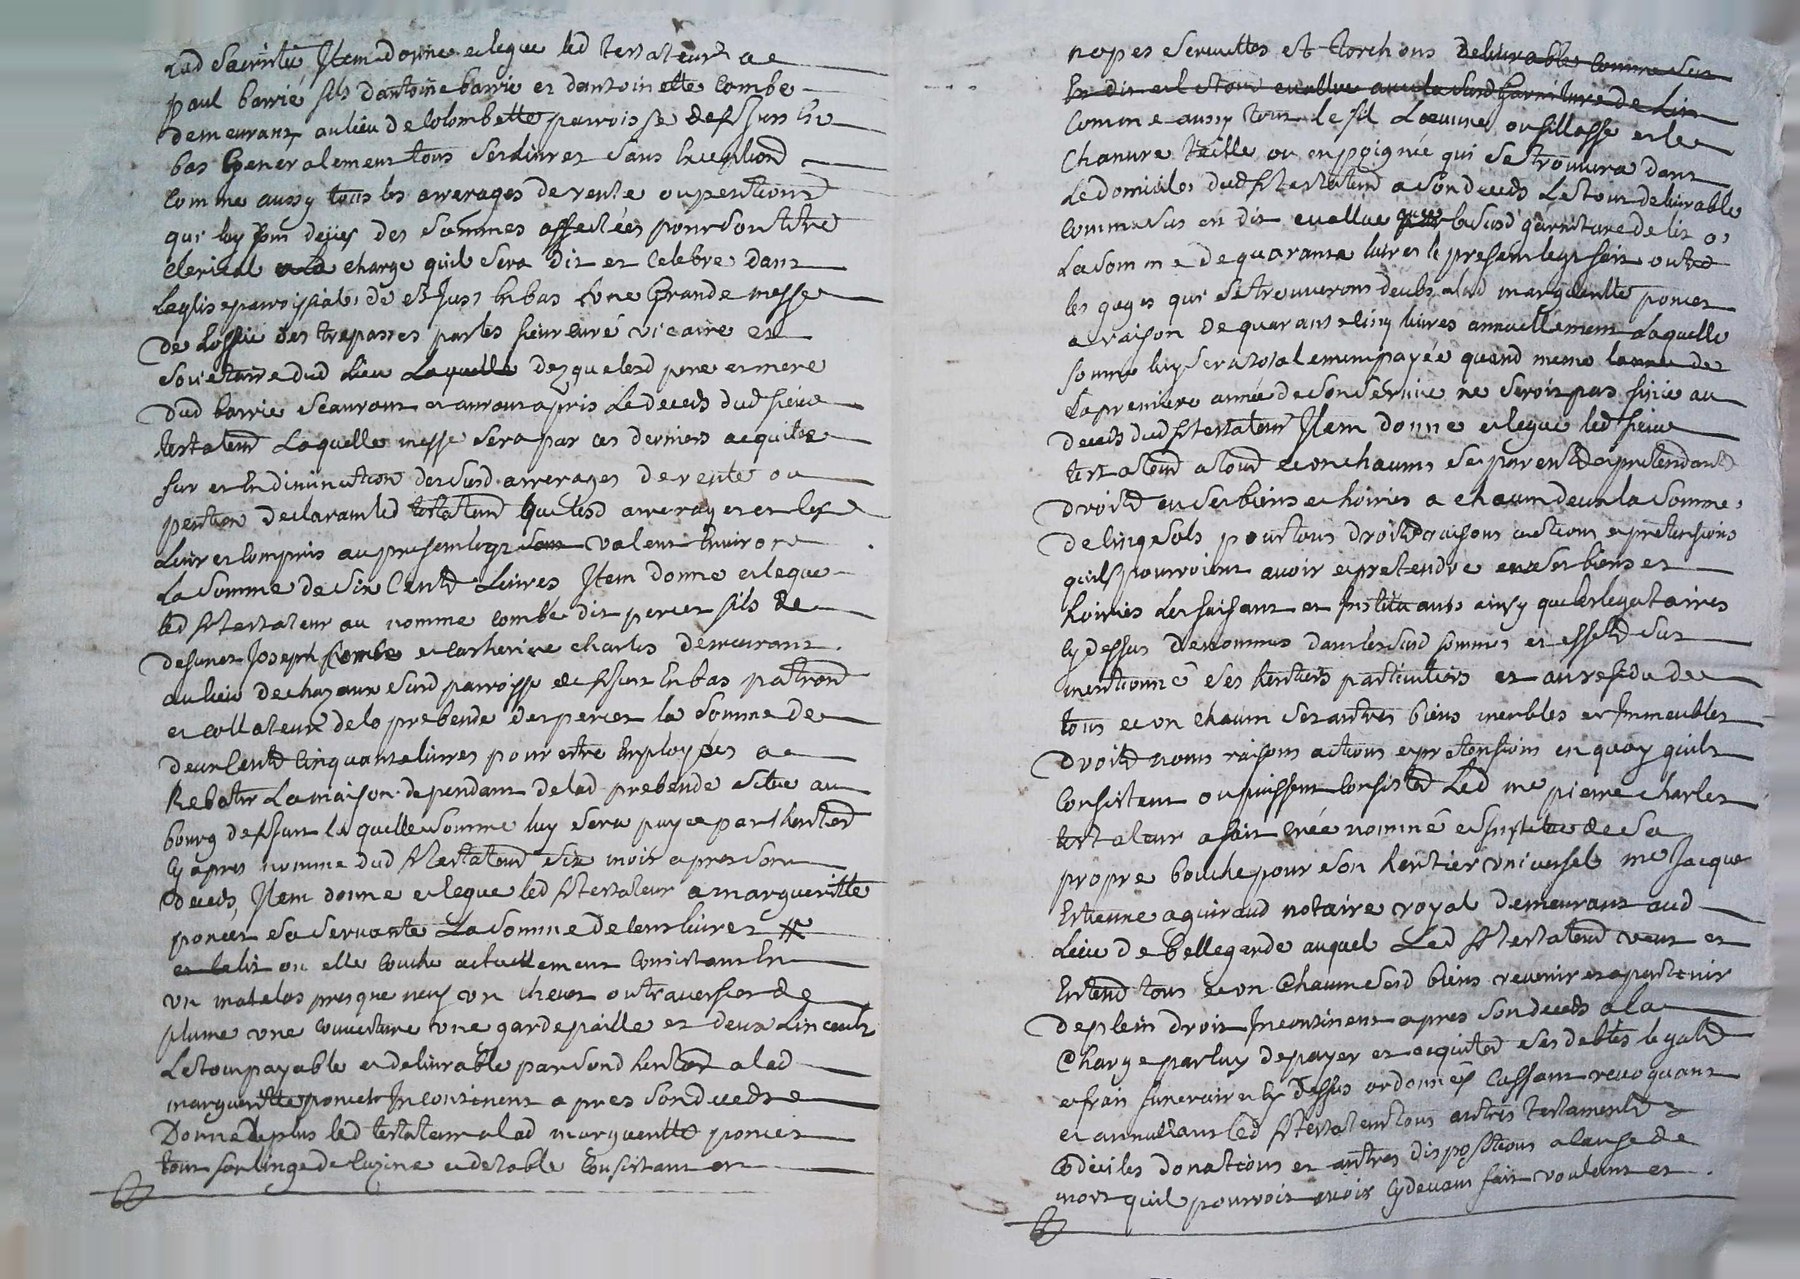 Lad Sacristie Item donne et legue led testateur a
paul barrié fils dantoine barrie et dantoinette Combe
demeurant au lieu de Colombette parroisse de st Just En
bas Generalement tous ses livres sans Exception
Comme aussy tous les arrerages de rente ou pention
qui luy sont deües des sommes affectées pour son titre
Clerical a la charge quil sera dit et Celebre dans
leglise parroissiale de st Just En bas une Grande messe
de Loffice des trepasses par les sieur curé vicaire et
dud Lieu Laquelle lesd pere et mere
dud barrie scauront et auront apris Le deceds dud sieur
testateur Laquelle messe sera par ces derniers acquitée
sur et En diminution desdusd arrerages de rente ou
pention declarant led testateur que lesd arrerages et les
Livres Compris au present legs valent Environ
La somme de Six Cents Livres Item donne et legue
led sr testateur au nomme Combe dit percet fils de
defunt Joseph Combe et Catherine Charles demeurant
au lieu de chazaux susd parroisse de st Just En bas patron
et collateur de la prebende des percet la somme de
deux Cents Cinquante livres pour estre Employées a
Rebatir La maison dependant de lad prebende situe au
bourg de st Just laquelle somme luy sera payée par lheritier
Cy apres nomme dud sr testateur Six mois apres son
deceds, Item donne et legue led sr testateur a margueritte
poncet sa servante La somme de Cent livres
et le lit ou elle Couche actuellement Consistant En
un matelas presque neuf un chevet ou traversier de
plume une Couverture une gardepaille et deux Linceuls
Le tout payable et delivrable par sond heritier a lad
margueritte poncet Incontinent apres son deceds
Donne de plus led testateur a lad margueritte poncet
tout son linge de Cuzine et de table Consistant en
napes serviettes et torchons delivrable Comme sus
En dit et le tout evallue avec la susd Garniture de Lin
Comme aussy tout le fil L'oeuvre ou fillasse et le
Chanvre teille ou en poignée qui se trouvera dans
Le domicile dud sr testateur a son deceds Le tout delivrable
Comme sus en dit evallue la susd garniture de lit a
La somme de quarante livres le present legs fait outre
les gages qui se trouveront deubs a lad margueritte poncet
a raison de quarante cinq livres annuellement Laquelle
somme luy sera totalement payée quand meme de
La premiere année de son service ne seroit pas finie au
deceds dud sr testateur Item donne et legue led sieur
testateur a tous et un chacuns ses parents et pretendants
droits en ses biens et hoiries a chacun deux la somme
de Cinq sols pour tous droits raisons actions et pretensions
quils pourroient avoir et pretendre en ses biens et
hoiries Les faisant et Instituants ainsy que les legataires
Cy dessus denommes dans les susd sommes et effets sus
mentionné ses heritiers particuliers et au residu de
tous et un chacun ses autres biens meubles et Immeubles
droits noms raisons actions et pretensions en quoy quils
Consistent ou puissent Consister Led me pierre charles
testateur a fait crée nommé et Institue de sa
propre bouche pour son heritier universel me Jacque
Estienne aguiraud notaire royal demeurant aud
Lieu de bellegarde auquel Led sr testateur veut et
Entend tous et un Chacun sesd biens revenir et apartenir
de plein droit Incontinent apres son deceds a la
Charge par luy de payer et acquiter ses debtes legats
et frais funeraires Cy dessus ordonnés Cassant revoquant
et annullant led sr testateur tous autres testaments
Codeciles donations et autres dispositions a cause de
mort quil pourroit avoir Cy devant fait voulant et